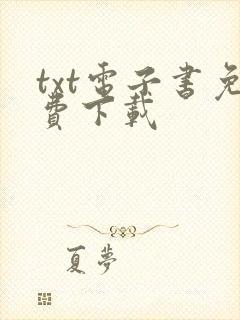 txt電子書免
費下載
夏夢